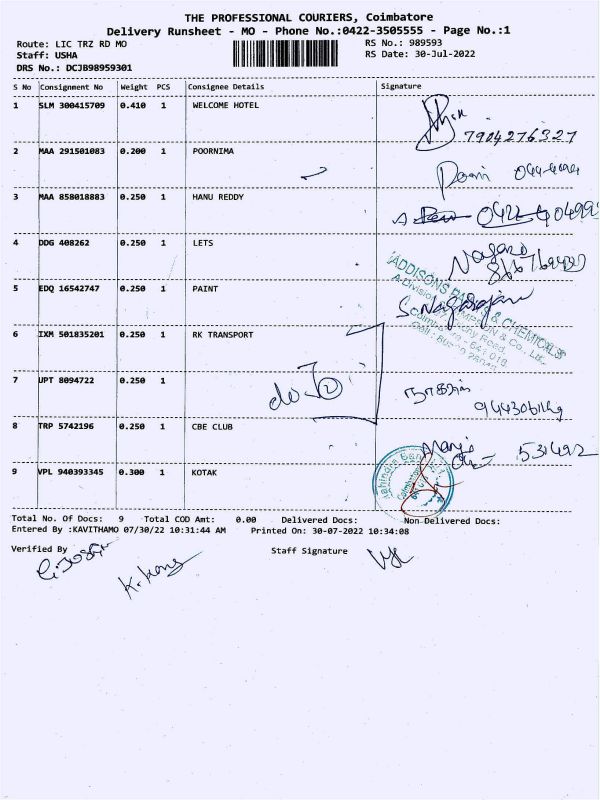 THE PROFESSIONAL COURIERS, Coimbatore
Delivery Runsheet - MO - Phone No.:0422-3505555 - Page No.:1
Route: LIC TRZ RD MO RS No.: 989593
Staff: USHA RS Date: 30-Jul-2022
DRS No.: DCJB98959301
S No Consignment No Weight PCS Consignee Details Signature
1 SLM 300415709 0.410 1 WELCOME HOTEL
7904276327
2 MAA 291501083 0.200 1 POORNIMA
3 MAA 858018883 0.250 1 HANU REDDY
4 DDG 408262 0.250 1 LETS
5 EDQ 16542747 0.250 1 PAINT
S. Nagarajan
6 IXM 501835201 0.250 1 RK TRANSPORT
7 UPT 8094722 0.250 1
8 TRP 5742196 0.250 1 CBE CLUB
531492
9 VPL 940393345 0.300 1 KOTAK
Total No. Of Docs: 9 Total COD Amt: 0.00 Delivered Docs: Non Delivered Docs:
Entered By :KAVITHAMO 07/30/22 10:31:44 AM Printed On: 30-07-2022 10:34:08
Verified By Staff Signature